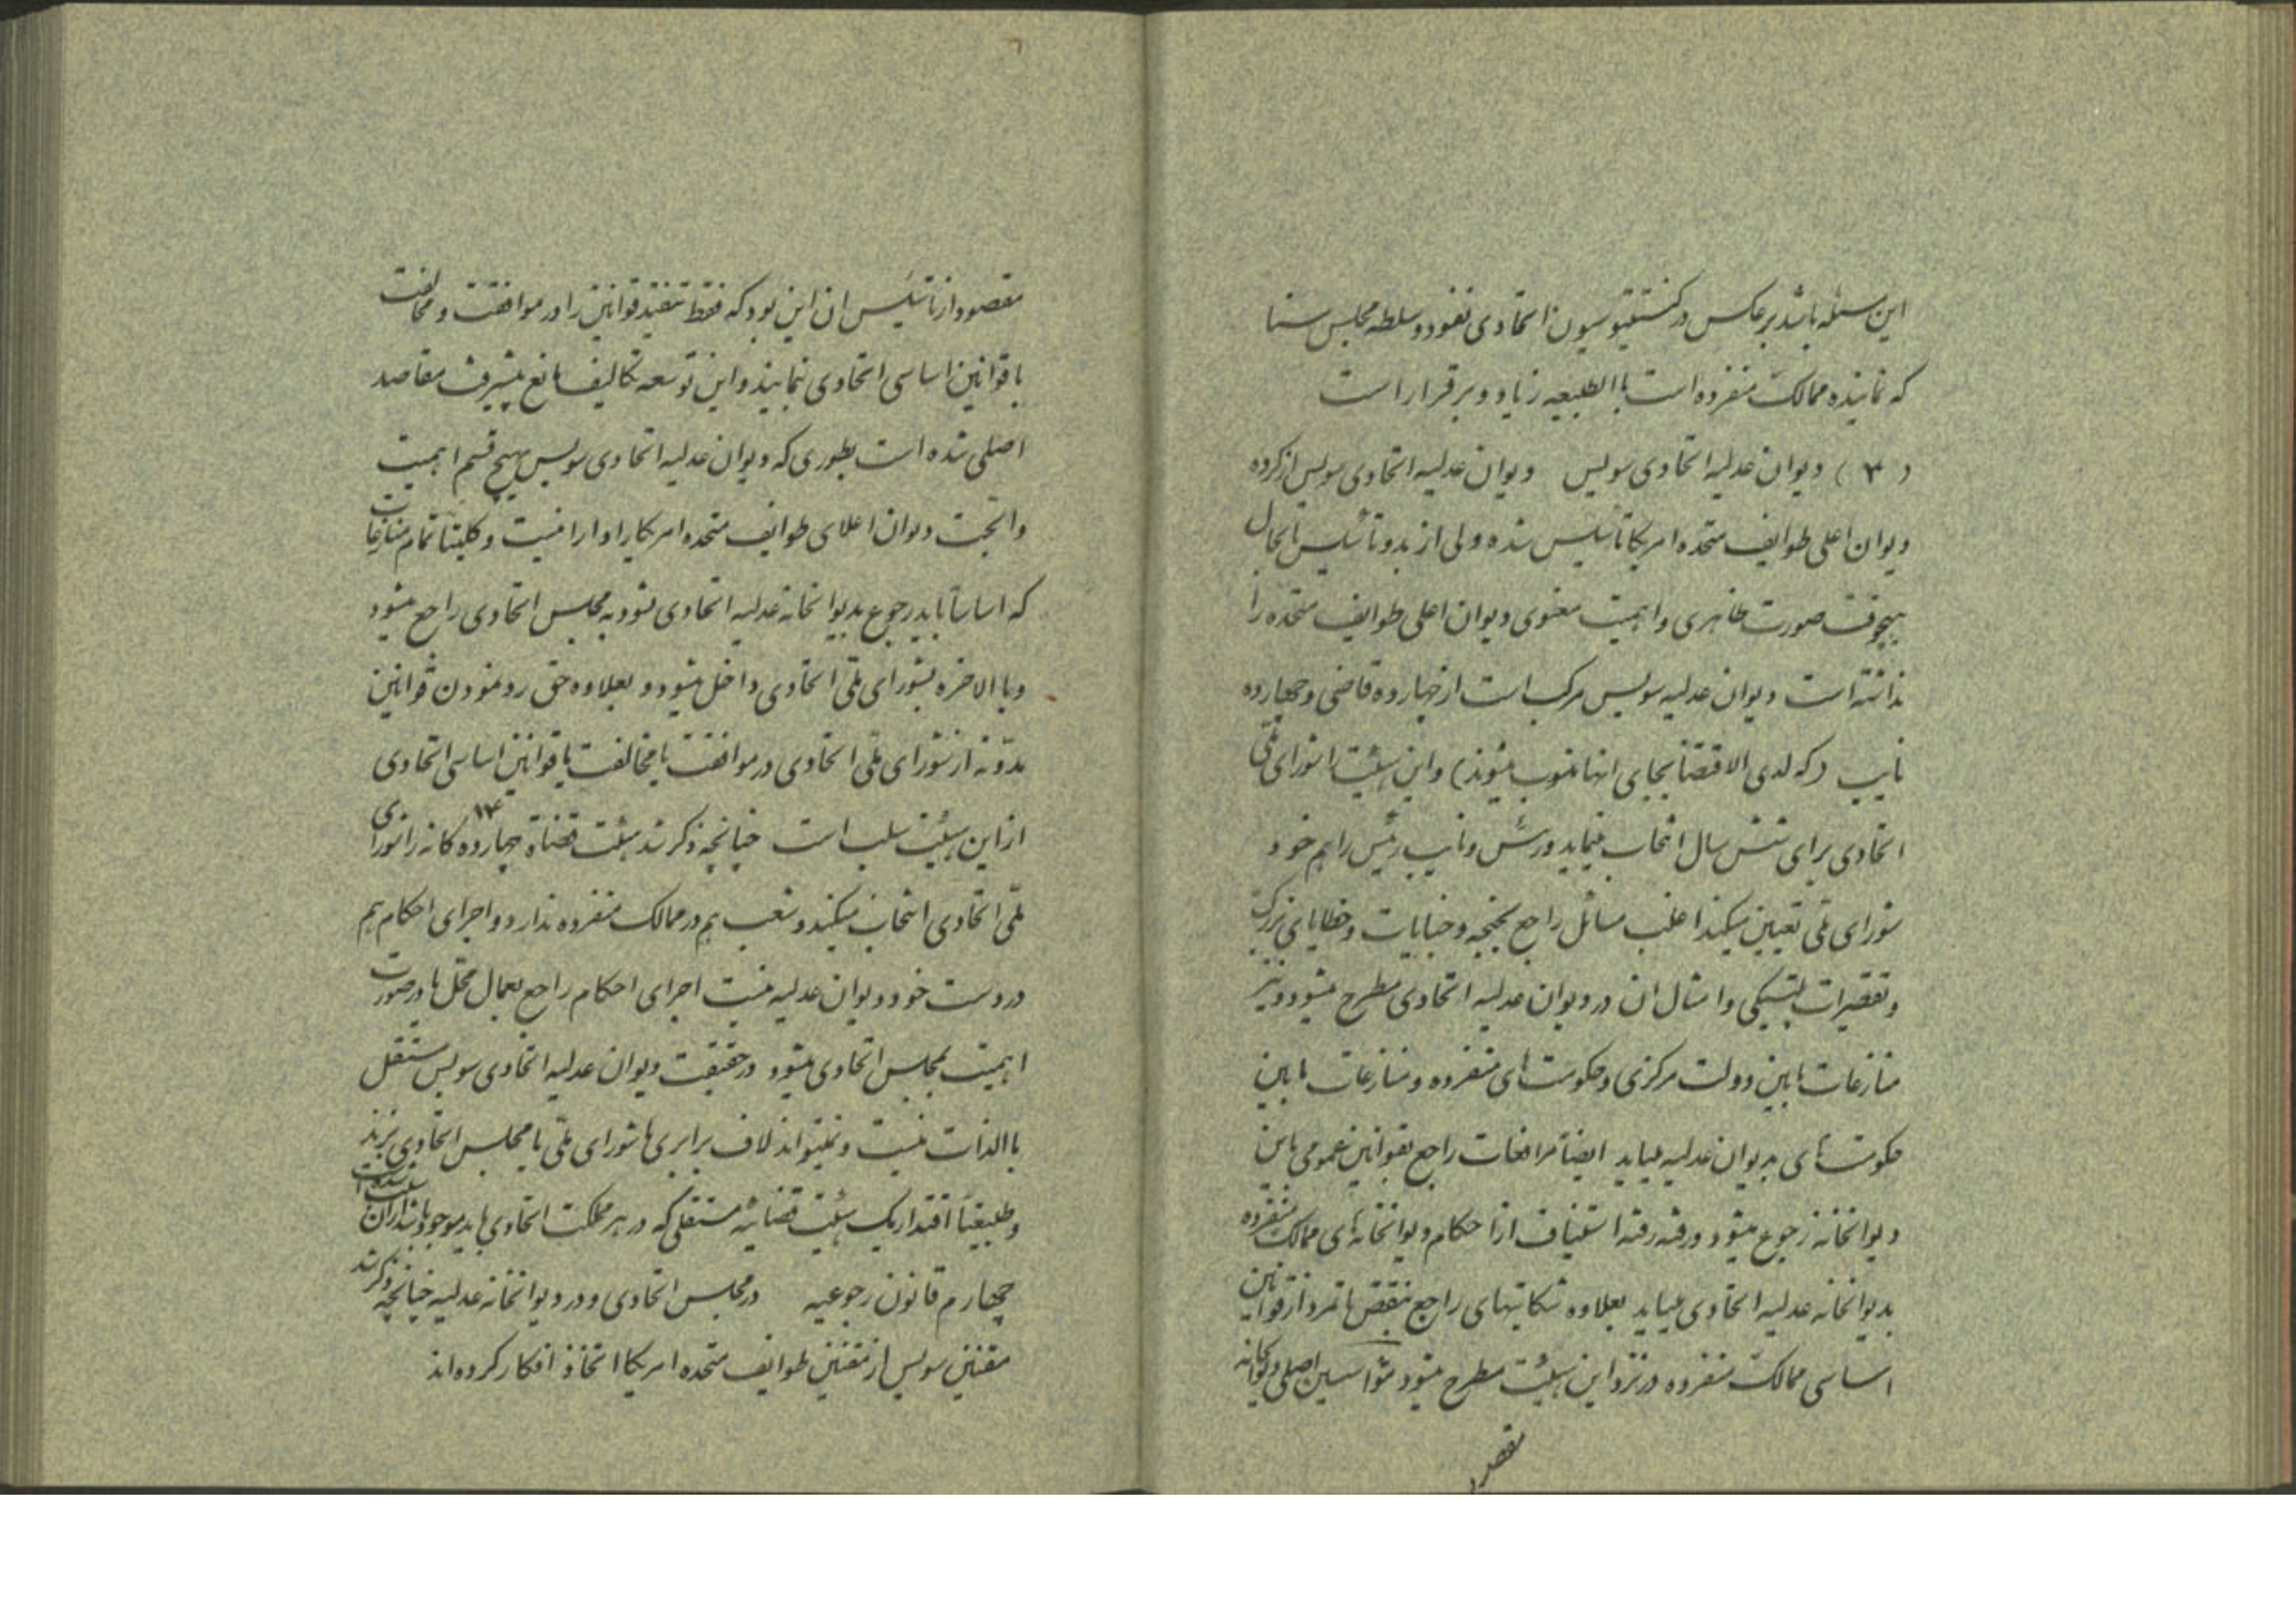 این مسئله باشد برعکس در کنستیتوسیون اتحادی نفوذ و سلطه مجلس سنا
که نماینده ممالک منفرده است باالطبیعه زیاد و برقرار است
( ۳ ) دیوان عدلیه اتحادی سویس دیوان عدلیه اتحادی سویس از کرده
دیوان اعلی طوایف متحده امریکا تأسیس شده ولی از بدو تأسیس تابحال
هیچوقت صورت ظاهری و اهمیت معنوی دیوان اعلی طوایف متحده را
نداشته است دیوان عدلیه سویس مرکب است از چهارده قاضی و چهارده
نایب (که لدی الاقتضا بجای انها منصوب میشوند) و این هیئت را شورای ملی
اتحادی برای شش سال انتخاب مینماید و رئیس و نایب رئیس را هم خود
شورای ملی تعیین میکند اغلب مسائل راجع بجنحه و جنایات و خطایای بزرگ
و تقصیرات پلتیکی و امثال ان در دیوان عدلیه اتحادی مطرح میشود و نیز
منازعات مابین دولت مرکزی و حکومت های منفرده و منازعات مابین
حکومت های بدیوان عدلیه میاید ایضاً مرافعات راجع بقوانین عمومی باین
دیوانخانه رجوع میشود و رفته رفته استیناف از احکام دیوانخانه های ممالک منفرده
بدیوانخانه عدلیه اتحادی میاید بعلاوه شکایتهای راجع بنقض یا تمرد از قوانین
اساسی ممالک منفرده در نزد این هیئت مطرح میشود مؤسسین اصلی دیوانخانه
مقصود
مقصود از تأسیس ان این بود که فقط تنقید قوانین را در موافقت و مخالفت
با قوانین اساسی اتحادی نمایند و این توسعه تکالیف مانع پیشرفت مقاصد
اصلی شده است بطوری که دیوان عدلیه اتحادی سویس بهیچ قسم اهمیت
و ابهت دیوان اعلای طوایف متحده امریکا را دارا نیست و کلیتاً تمام منازعات
که اساساً باید رجوع بدیوانخانه عدلیه اتحادی شود به مجلس اتحادی راجع میشود
و باالاخره بشورای ملی اتحادی داخل میشود و بعلاوه حق رد نمودن قوانین
مدونه از شورای ملی اتحادی در موافقت یا مخالفت با قوانین اساسی اتحادی
از این هیئت سلب است چنانچه ذکر شد هیئت قضاة چهارده ۱۴ گانه را شورای
ملی اتحادی انتخاب میکند و شعب هم در ممالک منفرده ندارد و اجرای احکام هم
در دست خود دیوان عدلیه نیست اجرای احکام راجع بعمال محل یا در صورت
اهمیت بمجلس اتحادی میشود در حقیقت دیوان عدلیه اتحادی سویس مستقل
باالذات نیست و نمیتواند لاف برابری با شورای ملی یا مجلس اتحادی بزند
و طبیعتاً اقتدار یک هیئت قضائیه مستقلی که در هر مملکت اتحادی باید موجود باشد از ان
چهارم قانون رجوعیه در مجلس اتحادی و در دیوانخانه عدلیه چنانچه ذکر شد
مقننین سویس از مقننین طوایف متحده امریکا اتخاذ افکار کرده اند